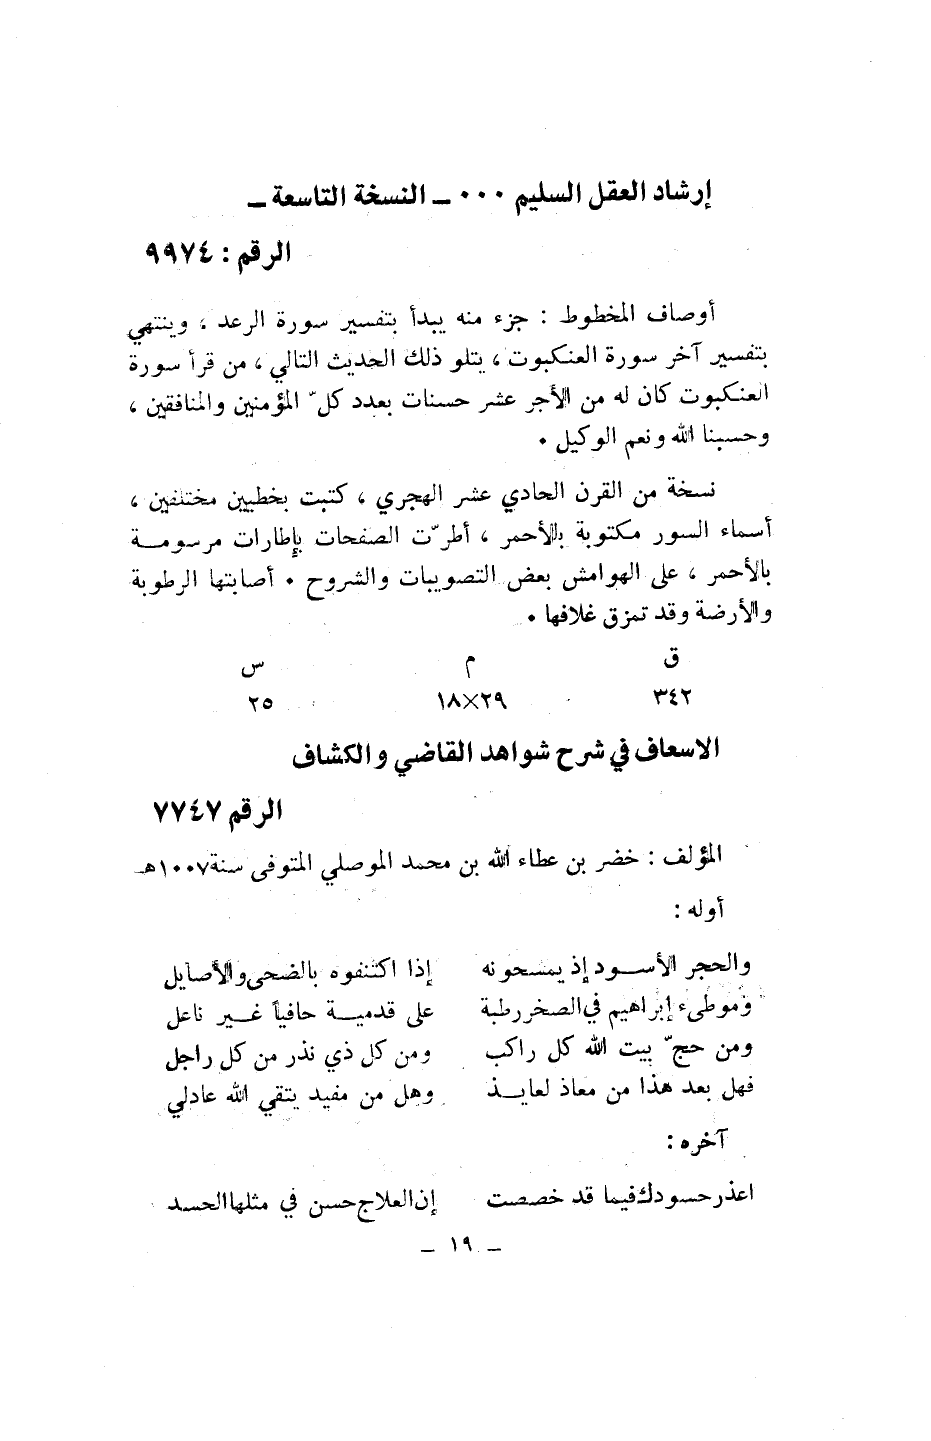 إرشاد العقل السليم ٠٠٠ ـ النسخة التاسعة ـ
الرقم : ٩٩٧٤
أوصاف المخطوط : جزء منه يبدأ بتفسير سورة الرعد ، وينتهي
بتفسير آخر سورة العنكبوت ، يتلو ذلك الحديث التالي ، من قرأ سورة
العنكبوت كان له من الأجر عشر حسنات بعدد كلّ المؤمنين والمنافقين ،
وحسبنا الله ونعم الوكيل ٠
نسخة من القرن الحادي عشر الهجري ، كتبت بخطيين مختلفين ،
أسماء السور مكتوبة بالأحمر ، أطرّت الصفحات بإطارات مرسومة
بالأحمر ، على الهوامش بعض التصويبات والشروح ٠ أصابتها الرطوبة
والأرضة وقد تمزق غلافها ٠
ق م س
٣٤٢ ٢٩×١٨ ٢٥
الاسعاف في شرح شواهد القاضي والكشاف
الرقم ٧٧٤٧
المؤلف : خضر بن عطاء الله بن محمد الموصلي المتوفى سنة ١٠٠٧هـ
أوله :
والحجر الأسود إذ يمسحونه إذا اكتنفوه بالضحى والأصايل
وموطىء إبراهيم في الصخر رطبة على قدمية حافياً غير ناعل
ومن حجّ بيت الله كل راكب ومن كل ذي نذر من كل راجل
فهل بعد هذا من معاذ لعايذ وهل من مفيد يتقي الله عادلي
آخره :
اعذر حسودك فيما قد خصصت إن العلاج حسن في مثلها الحسد
ـ ١٩ ـ